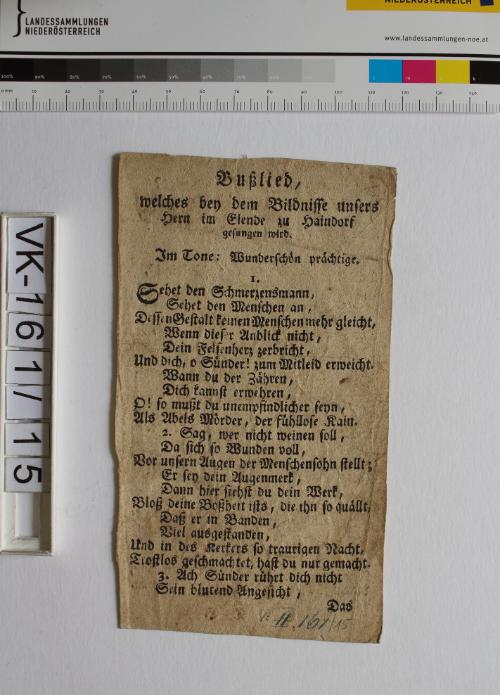 LANDESSAMMLUNGEN
NIEDERÖSTERREICH
NIEDERÖSTERREICH
www.landessammlungen-noe.at
VK-161/15
Bußlied,
welches bey dem Bildnisse unsers
Hern im Elende zu Haindorf
gesungen wird.
Im Tone: Wunderschön prächtige.
1.
Sehet den Schmerzensmann,
Sehet den Menschen an,
Dessen Gestalt keinen Menschen mehr gleicht,
Wenn dieser Anblick nicht,
Dein Felsenherz zerbricht,
Und dich, o Sünder! zum Mitleid erweicht.
Wann du der Zähren,
Dich kannst erwehren,
O! so mußt du unempfindlicher seyn,
Als Abels Mörder, der fühllose Kain.
2. Sag, wer nicht weinen soll,
Da sich so Wunden voll,
Vor unsern Augen der Menschensohn stellt;
Er sey dein Augenmerk,
Dann hier siehst du dein Werk,
Bloß deine Boßheit ists, die ihn so quällt,
Daß er in Banden,
Viel ausgestanden,
Und in des Kerkers so traurigen Nacht,
Trostlos geschmachtet, hast du nur gemacht.
3. Ach Sünder rührt dich nicht
Sein blutend Angesicht,
Das
161/15